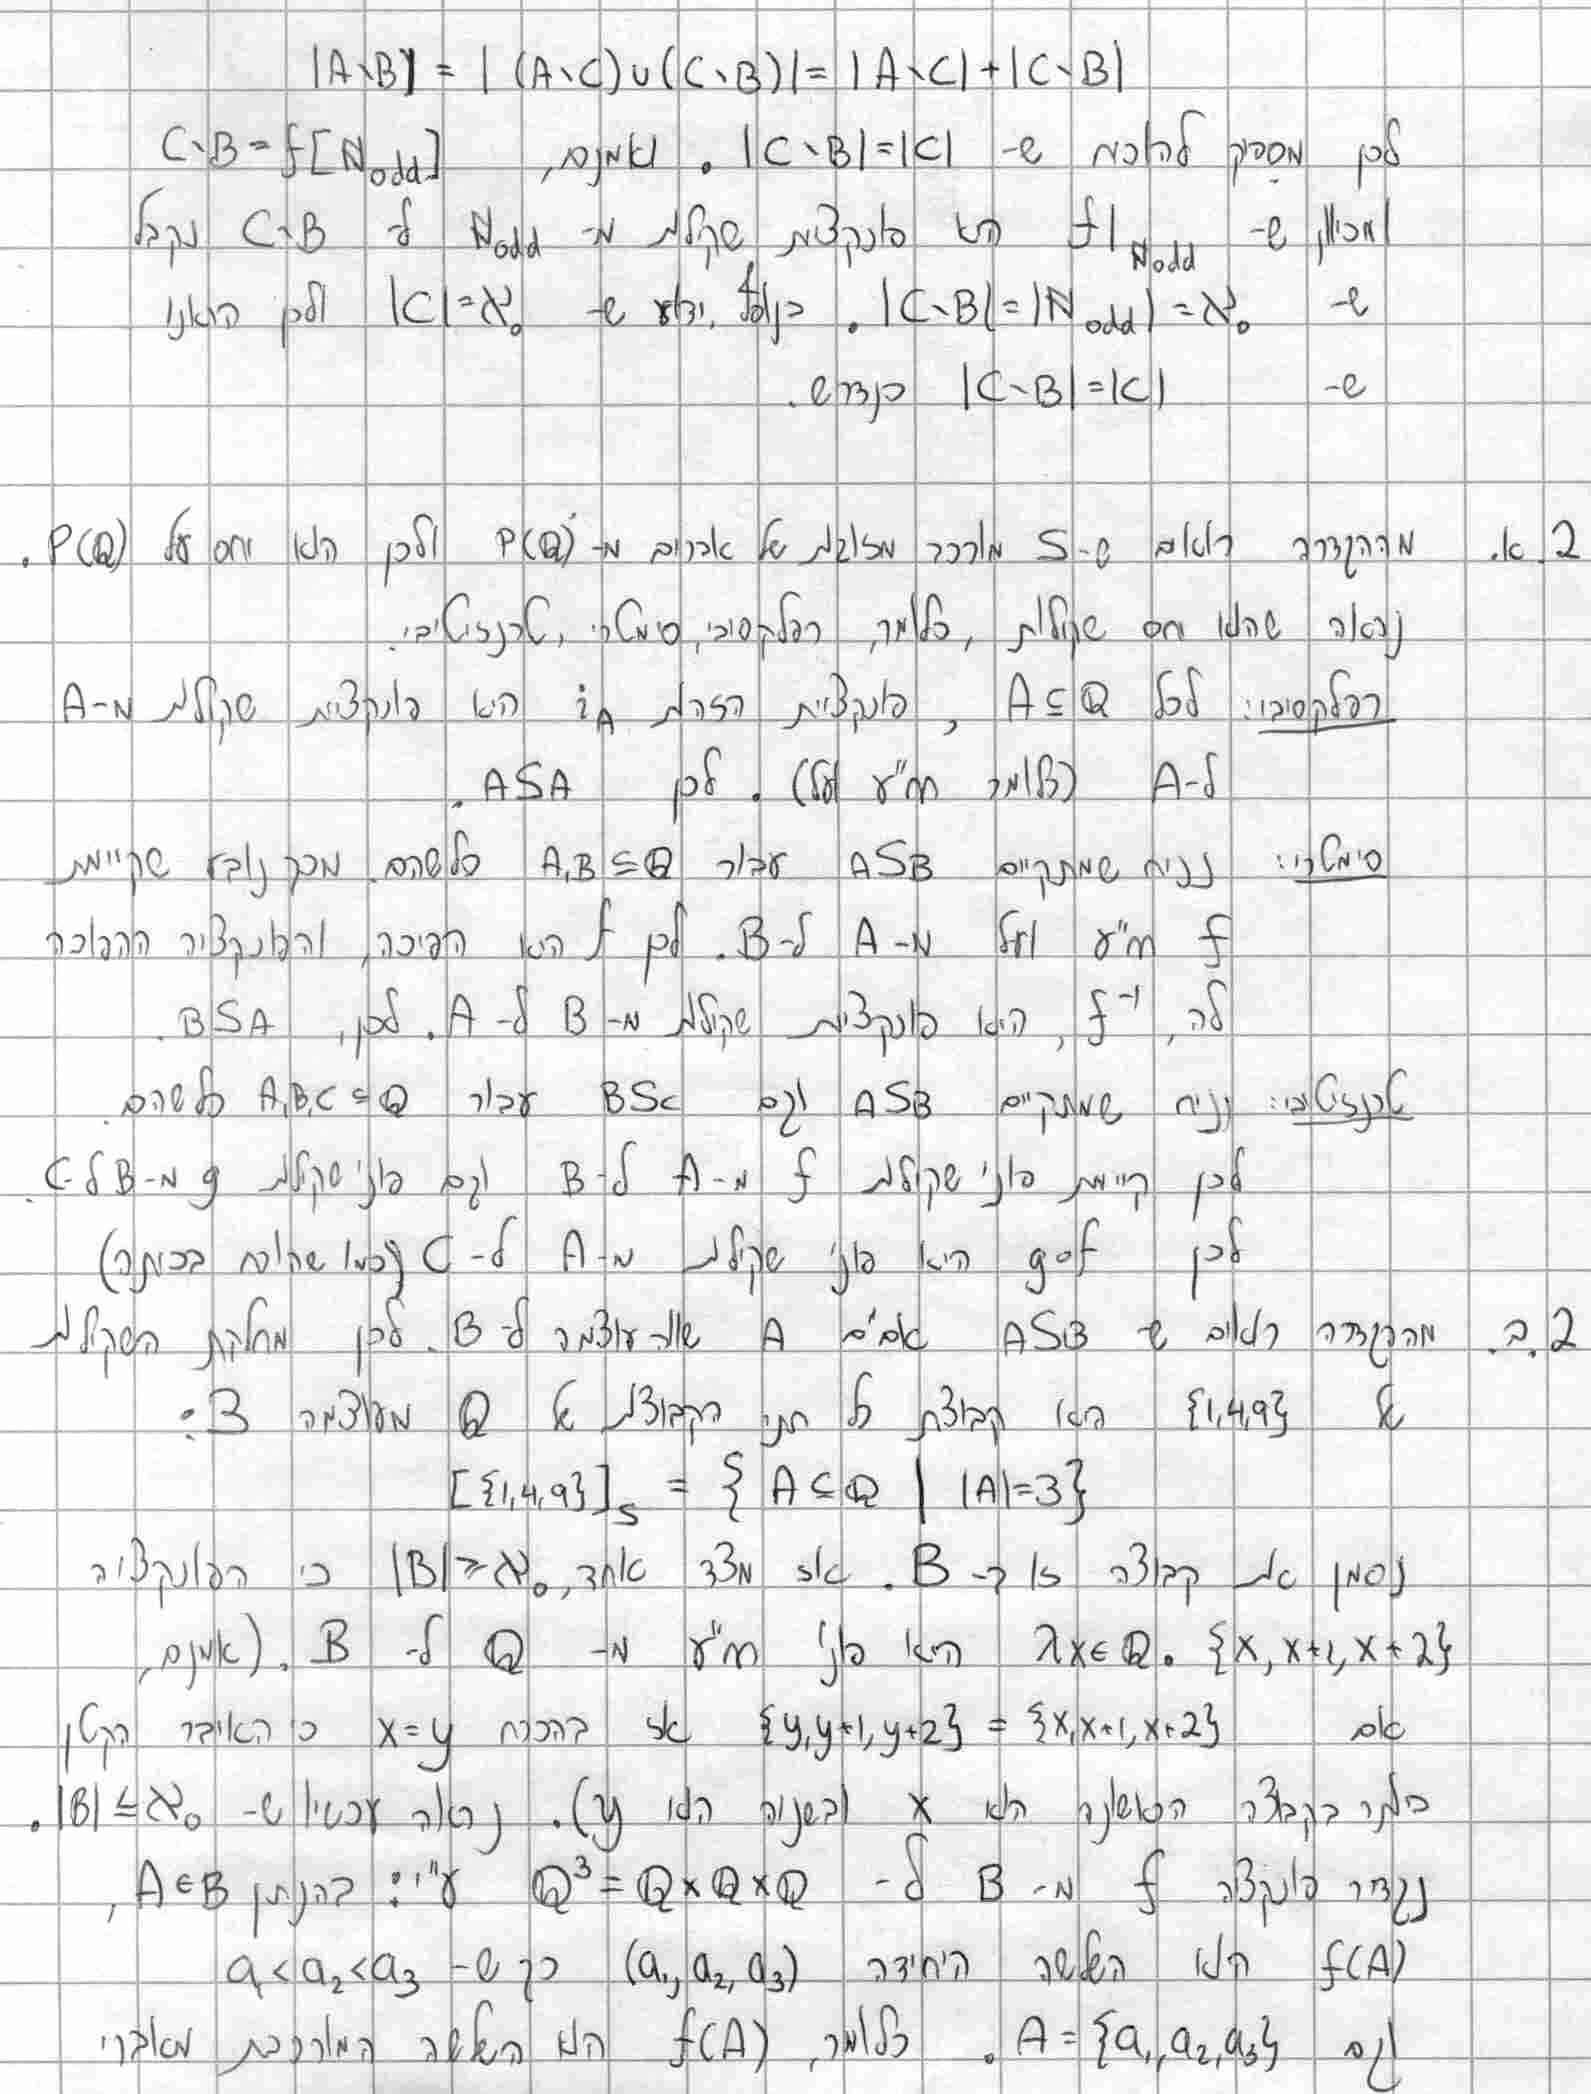 |A∖B| = |(A∖C)∪(C∖B)| = |A∖C| + |C∖B|
לכן מספיק להוכיח ש- |C∖B|=|C| . ואמנם, C∖B = f[ℕodd]
ומכיוון ש- f|ℕodd היא פונקציית שקילות מ- ℕodd ל- C∖B נקבל
ש- |C∖B|=|ℕodd|=ℵ₀ . כנ"ל, ידוע ש- |C|=ℵ₀ ולכן הראנו
ש- |C∖B|=|C| כנדרש.
2.א. מההגדרה רואים ש-S מורכב מזוגות של אברים מ-P(ℚ) ולכן הוא יחס על P(ℚ).
נראה שהוא יחס שקילות, כלומר, רפלקסיבי, סימטרי, טרנזיטיבי.
רפלקסיבי: לכל A⊆ℚ, פונקציית הזהות i_A היא פונקציית שקילות מ-A
ל-A (כלומר חח"ע ועל). לכן ASA.
סימטרי: נניח שמתקיים ASB עבור A,B⊆ℚ כלשהם. מכך נובע שקיימת
f חח"ע ועל מ-A ל-B. לכן f היא הפיכה, והפונקציה ההפוכה
לה, f⁻¹, היא פונקציית שקילות מ-B ל-A. לכן, BSA.
טרנזיטיבי: נניח שמתקיים ASB וגם BSC עבור A,B,C⊆ℚ כלשהם.
לכן קיימת פונ' שקילות f מ-A ל-B וגם פונ' שקילות g מ-B ל-C.
לכן g∘f היא פונ' שקילות מ-A ל-C (כמו שהוכח בכיתה)
2.ב. מההגדרה רואים ש ASB אם"ם A שוות עוצמה ל-B. לכן מחלקת השקילות
של {1,4,9} היא קבוצת כל תתי הקבוצות של ℚ מעוצמה 3:
[{1,4,9}]_S = {A⊆ℚ | |A|=3}
נסמן את קבוצה זו ב-B. אז מצד אחד, |B|≥ℵ₀ כי הפונקציה
λx∈ℚ. {x, x+1, x+2} היא פונ' חח"ע מ- ℚ ל- B. (אמנם,
אם {x,x+1,x+2} = {y,y+1,y+2} אז בהכרח x=y כי האיבר הקטן
ביותר בקבוצה הראשונה הוא x ובשניה הוא y). נראה עכשיו ש- |B|≤ℵ₀.
נגדיר פונקציה f מ- B ל- ℚ³=ℚ×ℚ×ℚ ע"י: בהנתן A∈B,
f(A) היא השלשה היחידה (a₁,a₂,a₃) כך ש- a₁<a₂<a₃
וגם A={a₁,a₂,a₃}. כלומר, f(A) היא השלשה המורכבת מאיברי